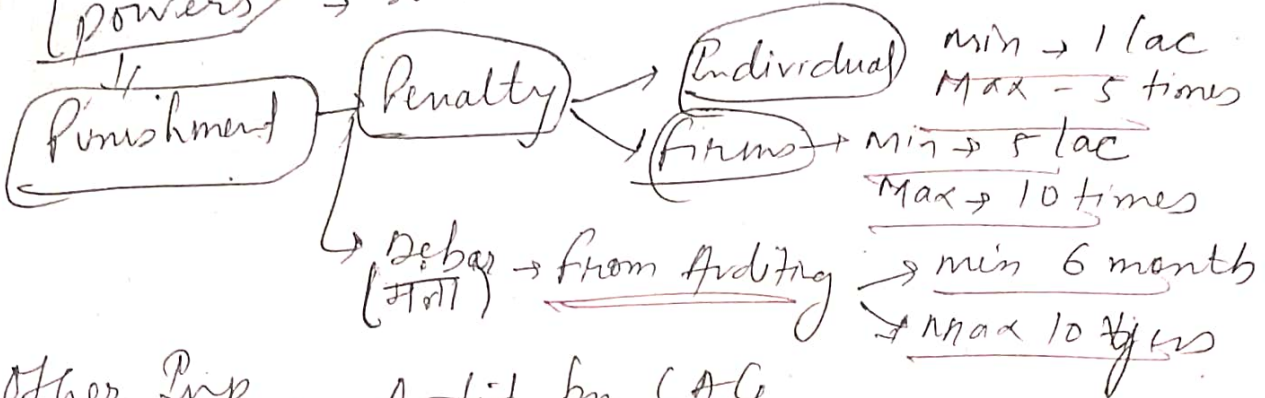 (powers) →
Punishment → Penalty → Individual Min → 1 lac
Max - 5 times
firms → Min → 5 lac
Max → 10 times
Debar → from Auditing → min 6 month
(मना) → max 10 years
Other Audit by CAG